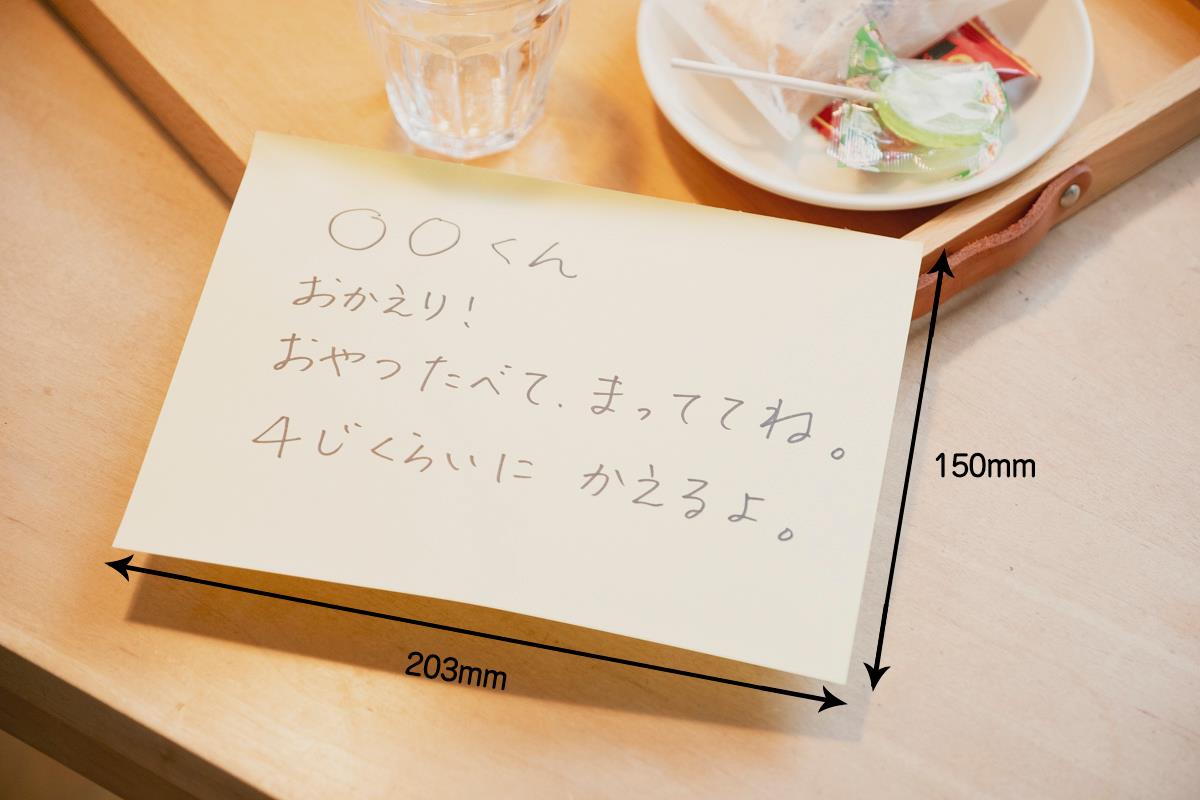 〇〇くん
おかえり!
おやつ たべて、まっててね。
4じくらいに かえるよ。
150mm
203mm